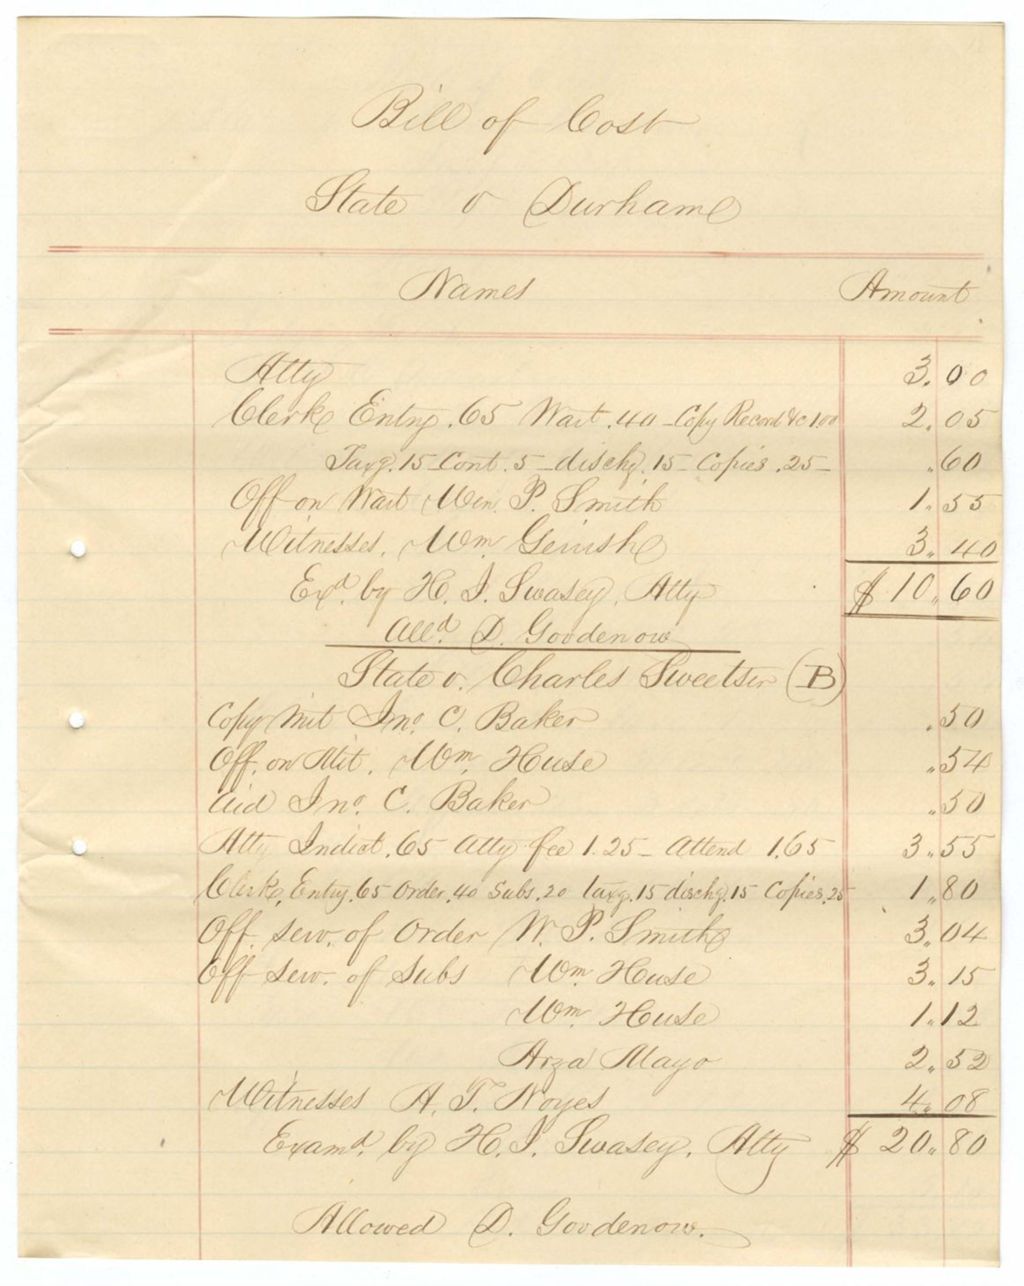 Bill of Cost
State v Durham
Names Amount
Atty 3.00
Clerk Entry .65 Wart .40 - Copy Record &c 1.00 2.05
Taxg. 15 - Cont. 5 - dischg. 15 - Copies .25 - .60
Off on Wart Wm. P. Smith 1.55
Witnesses. Wm. Gerrish 3.40
Exd. by H. I. Swasey. Atty $10.60
Alld. D. Goodenow
State v. Charles Sweetser (B)
Copy Mit Jno. C. Baker .50
Off. on Mit. Wm. House .54
Aid Jno. C. Baker .50
Atty Indict. .65 Atty fee 1.25 - Attend 1.65 3.55
Clerk, Entry .65 Order .40 Subs. .20 Taxg. 15 dischg. 15 Copies .25 1.80
Off. serv. of Order W. P. Smith 3.04
Off serv. of Subs Wm. House 3.15
Wm. House 1.12
Arza Mayo 2.52
Witnesses A. T. Noyes 4.08
Examd. by H. I. Swasey. Atty $20.80
Allowed D. Goodenow.